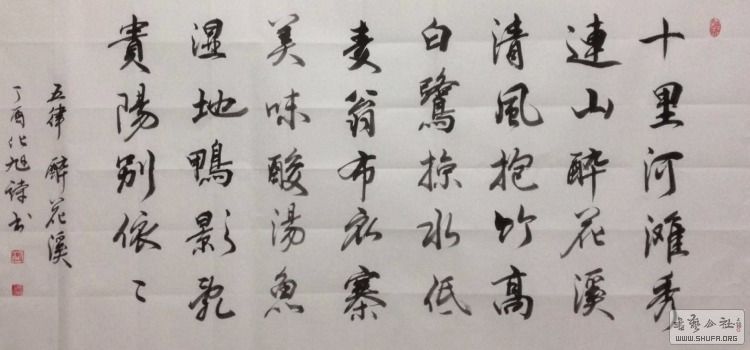 十里河滩秀
連山醉花溪
清風抱竹高
白鷺掠水低
麦翁布衣寨
美味酸湯魚
湿地鴨影乱
貴陽别依〻
五律 醉花溪
丁酉化旭詩书
书艺公社
WWW.SHUFA.ORG